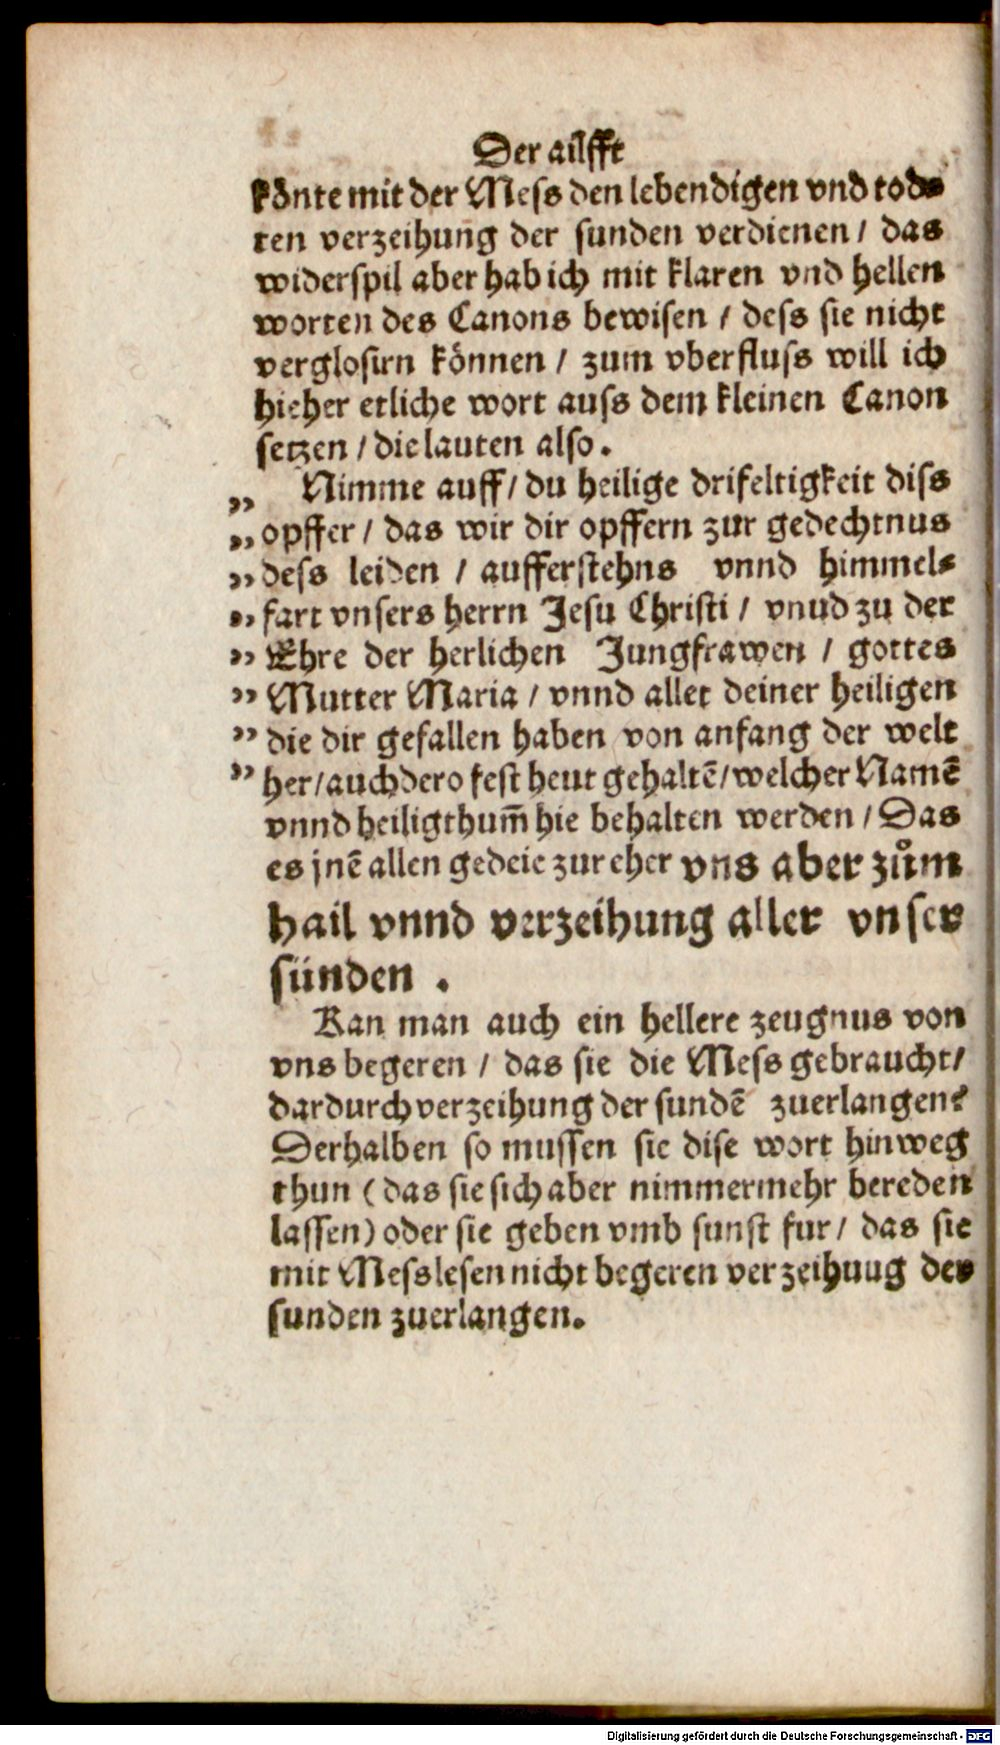 Der ailfft
koͤnte mit der Mess den lebendigen vnd tod⸗
ten verzeihung der sunden verdienen / das
widerspil aber hab ich mit klaren vnd hellen
worten des Canons bewisen / dess sie nicht
verglosirn koͤnnen / zum vberfluss will ich
hieher etliche wort auss dem kleinen Canon
setzen / die lauten also.
„ Nimme auff / du heilige drifeltigkeit diss
„ opffer / das wir dir opffern zur gedechtnus
„ dess leiden / aufferstehns vnnd himmel⸗
„ fart vnsers herrn Jesu Christi / vnud zu der
„ Ehre der herlichen Jungfrawen / gottes
„ Mutter Maria / vnnd aller deiner heiligen
„ die dir gefallen haben von anfang der welt
„ her / auch dero fest heut gehaltẽ / welcher Namẽ
vnnd heiligthum̃ hie behalten werden / Das
es jnẽ allen gedeie zur eher vns aber zům
hail vnnd verzeihung aller vnser
sünden .
Kan man auch ein hellere zeugnus von
vns begeren / das sie die Mess gebraucht /
dardurch verzeihung der sundẽ zuerlangen?
Derhalben so mussen sie dise wort hinweg
thun (das sie sich aber nimmermehr bereden
lassen) oder sie geben vmb sunst fur / das sie
mit Messlesen nicht begeren verzeihuug der
sunden zuerlangen.
Digitalisierung gefördert durch die Deutsche Forschungsgemeinschaft - DFG